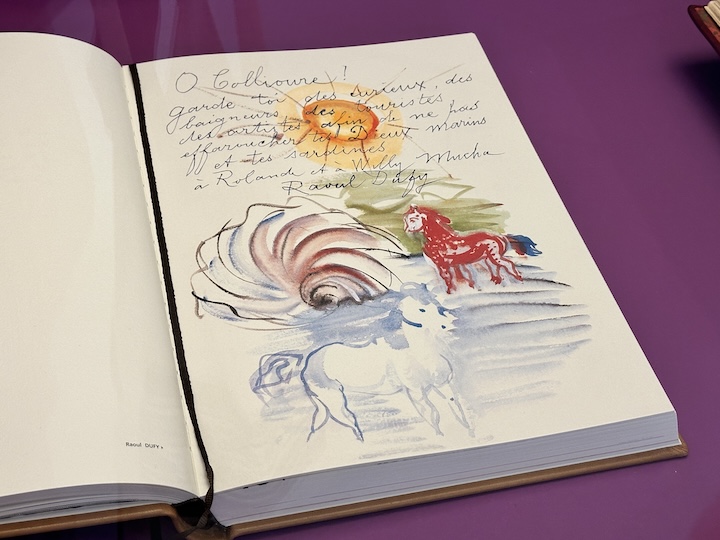 O Collioure !
garde toi des curieux, des
baigneurs, des touristes
des artistes afin de ne pas
effaroucher tes Dieux marins
et tes sardines
à Rolande et à Willy Mucha
Raoul Dufy
Raoul DUFY